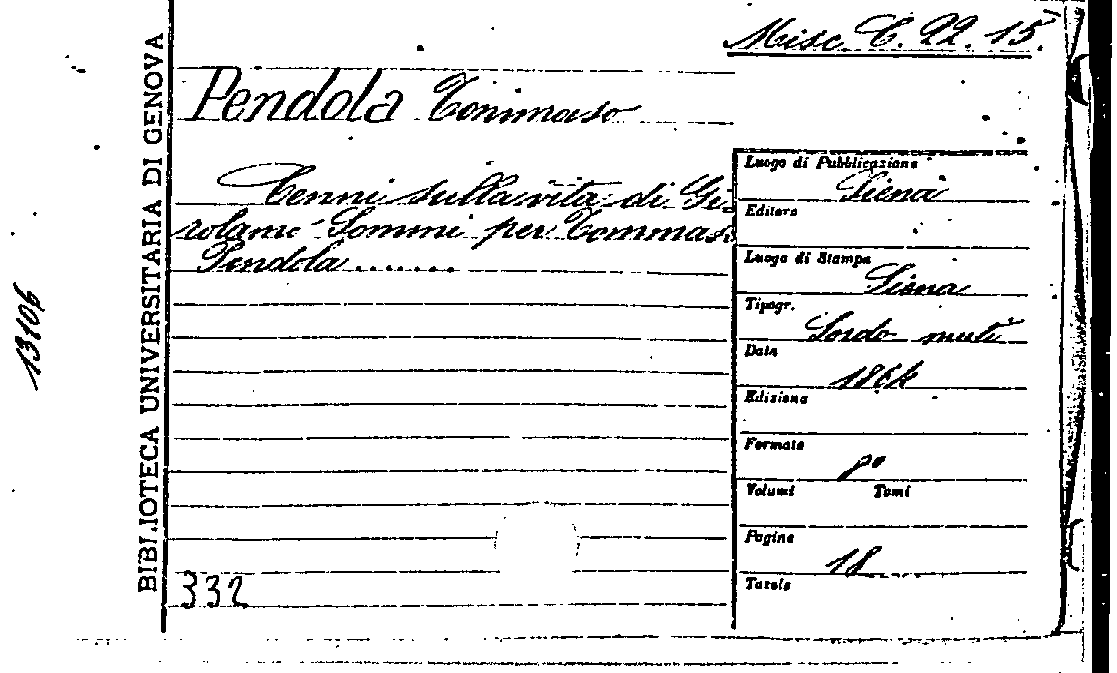 Misc. C. 22. 15.
Pendola Tommaso
Cenni sulla vita di Gi-
rolamo Sommi per Tommaso
Pendola .......
332
BIBLIOTECA UNIVERSITARIA DI GENOVA
13106
Luogo di Pubblicazione
Siena
Editore
Luogo di Stampa
Siena
Tipogr.
Sordo muti
Data
1864
Edizione
Formato
8°
Volumi Tomi
Pagine
18
Tavole